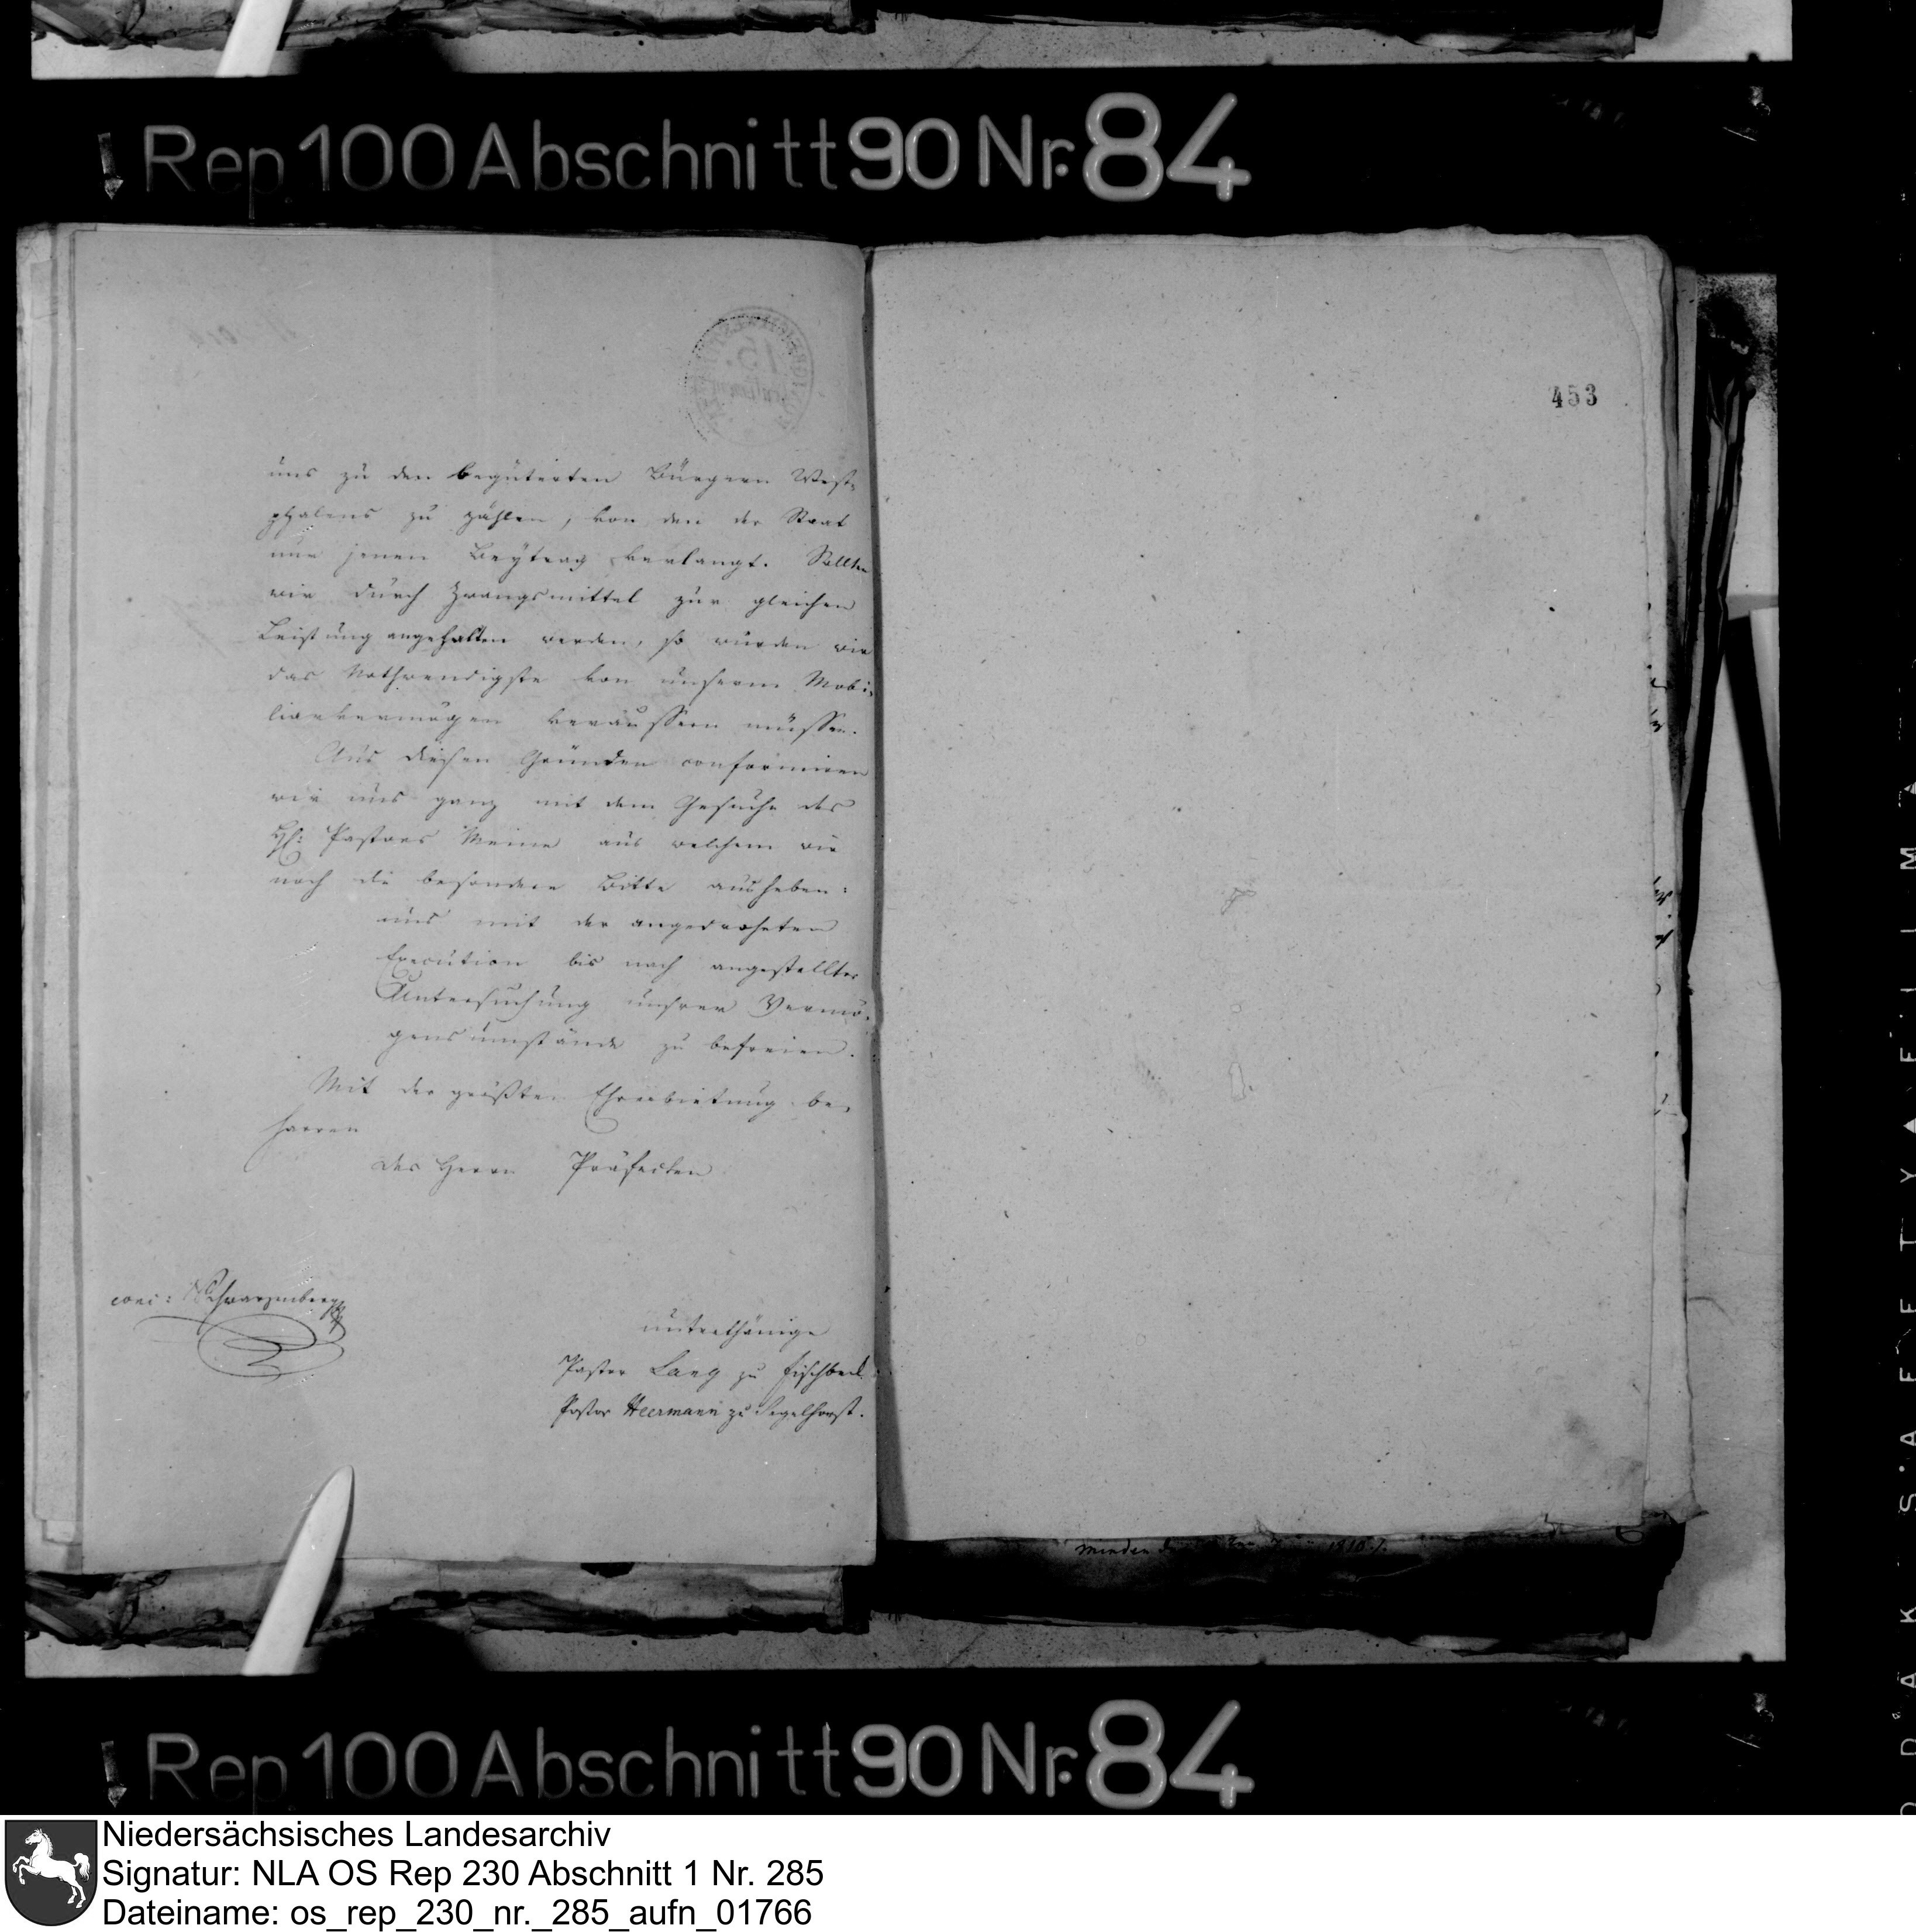 Rep 100 Abschnitt 90 Nr. 84
453
uns zu den begüterten Bürgern West-
phalens zu zählen, von den der Staat
nur jenen Beytrag verlangt. Sollten
wir durch Zwangsmittel zur gleichen
Leistung angehalten werden, so würden wir
das Nothwendigste von unserm Mobi-
liarvermögen veraussern müssen.
Aus diesen Gründen conformiren
wir uns ganz mit dem Gesuche des
H: Pastors Meine aus welchem wir
noch die besondere Bitte ausheben:
uns mit der angedrohten
Execution bis nach angestellter
Untersuchung unsrer Vermö-
gensumstände zu befreien.
Mit der größten Ehrerbietung be-
harren
des Herrn Präfecten
conc: Schwarzenberg
unterthänige
Pastor Lang zu Fischbeck
Pastor Heermann zu Segelhorst.
Minden 1810
Rep 100 Abschnitt 90 Nr. 84
Niedersächsisches Landesarchiv
Signatur: NLA OS Rep 230 Abschnitt 1 Nr. 285
Dateiname: os_rep_230_nr._285_aufn_01766